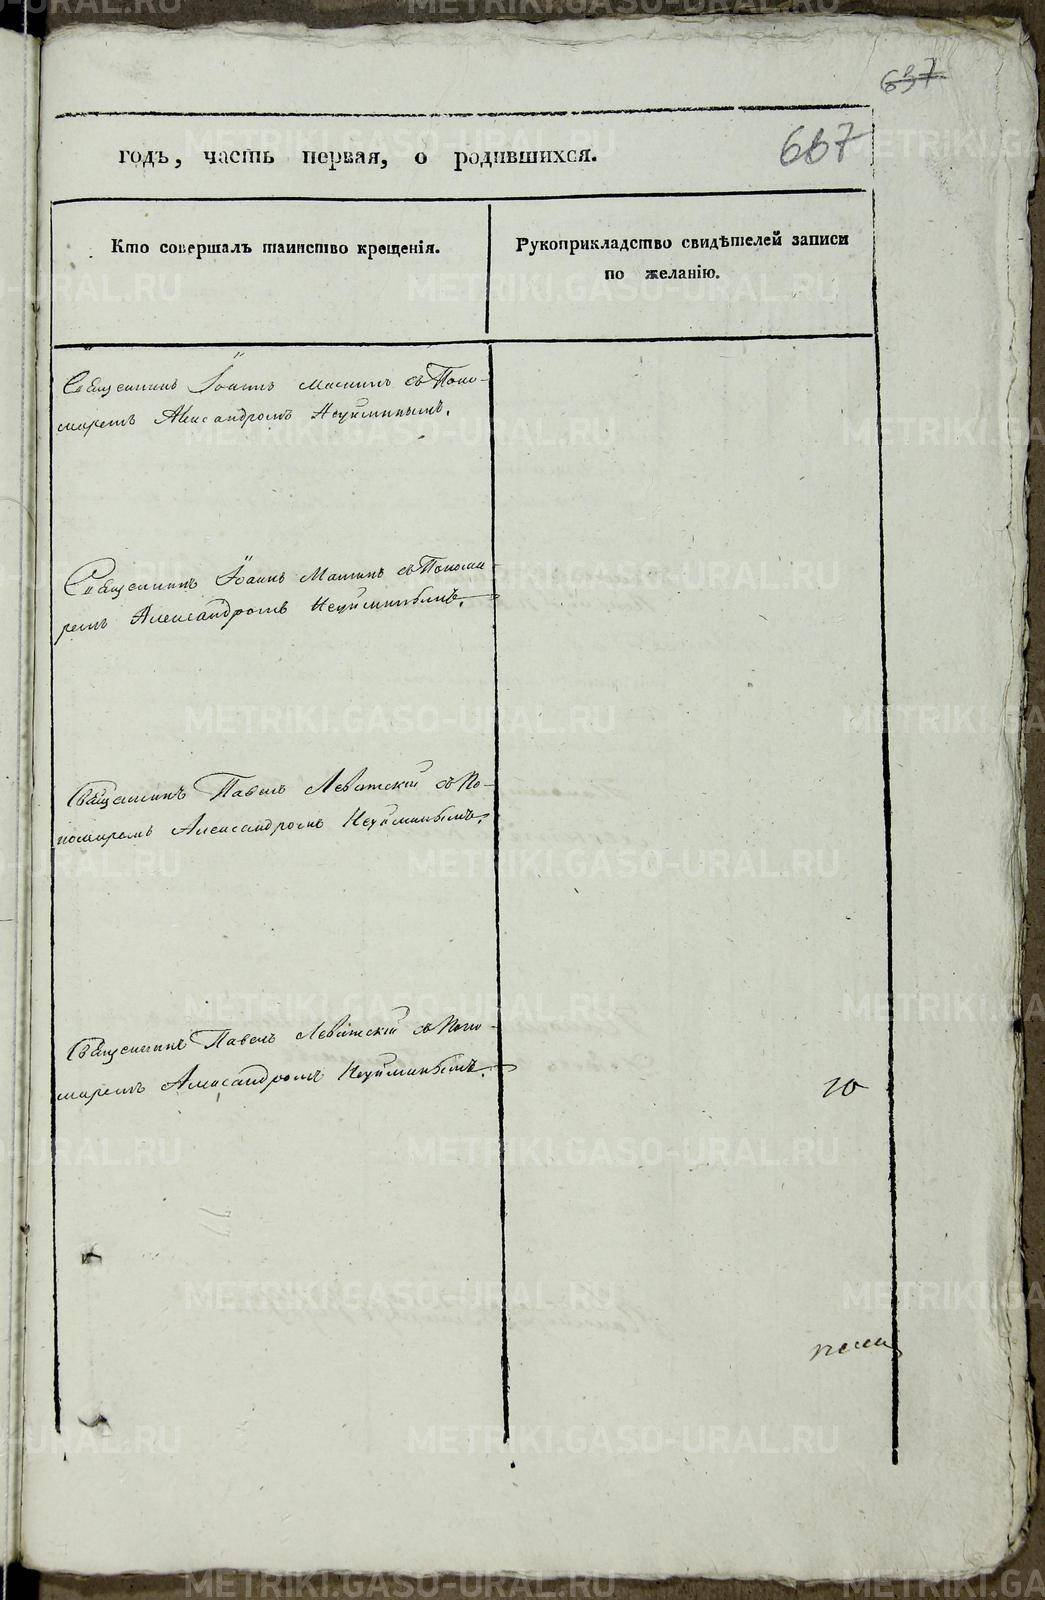 637
667
годъ, часть первая, о родившихся.
Кто совершалъ таинство крещенія.
Рукоприкладство свидѣтелей записи
по желанію.
Священникъ Іоаннъ с Поно-
маремъ Александромъ Неуйминымъ.
Священникъ Іоаннъ с Понома
ремъ Александромъ Неуйминымъ.
Священникъ Павелъ Леватскій с По-
номаремъ Александромъ Неуйминымъ.
Священникъ Павелъ Леватскій с Поно-
маремъ Александромъ Неуйминымъ.
METRIKI.GASO-URAL.RU